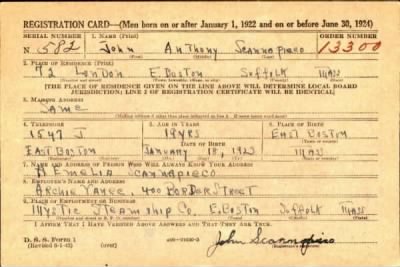 REGISTRATION CARD—(Men born on or after January 1, 1922 and on or before June 30, 1924)
SERIAL NUMBER 1. NAME (Print) ORDER NUMBER
N 582 John Anthony Scannapieco 13300
2. PLACE OF RESIDENCE (Print)
72 London E. Boston Suffolk Mass
[THE PLACE OF RESIDENCE GIVEN ON THE LINE ABOVE WILL DETERMINE LOCAL BOARD
JURISDICTION; LINE 2 OF REGISTRATION CERTIFICATE WILL BE IDENTICAL]
3. MAILING ADDRESS
Same
4. TELEPHONE 5. AGE IN YEARS 6. PLACE OF BIRTH
1547 J 19 YRS East Boston
DATE OF BIRTH
East Boston January 18, 1923 Mass
7. NAME AND ADDRESS OF PERSON WHO WILL ALWAYS KNOW YOUR ADDRESS
Emelia Scannapieco
8. EMPLOYER'S NAME AND ADDRESS
Archie 400 Border Street
9. PLACE OF EMPLOYMENT OR BUSINESS
Mystic Steamship Co. E. Boston Suffolk Mass
I AFFIRM THAT I HAVE VERIFIED ABOVE ANSWERS AND THAT THEY ARE TRUE.
D. S. S. Form 1
(Revised 6-1-42) (over)
John Scannapieco